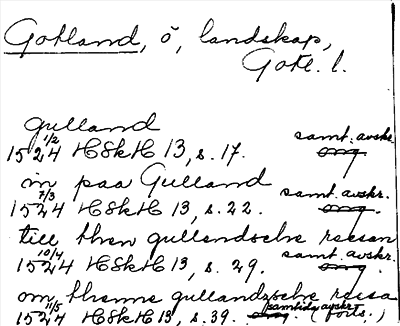 Gotland, ö, landskap,
Gotl. l.
gulland
1524 1/2 HSkH 13, s. 17. samt. avskr. orig.
in paa Gulland
1524 7/3 HSkH 13, s. 22. samt. avskr. orig.
till then gullendsche reesen
1524 10/4 HSkH 13, s. 29. samt. avskr. orig.
om thenne gullandzsche reesa
1524 11/5 HSkH 13, s. 39. samtida avskr. orig. (forts.)